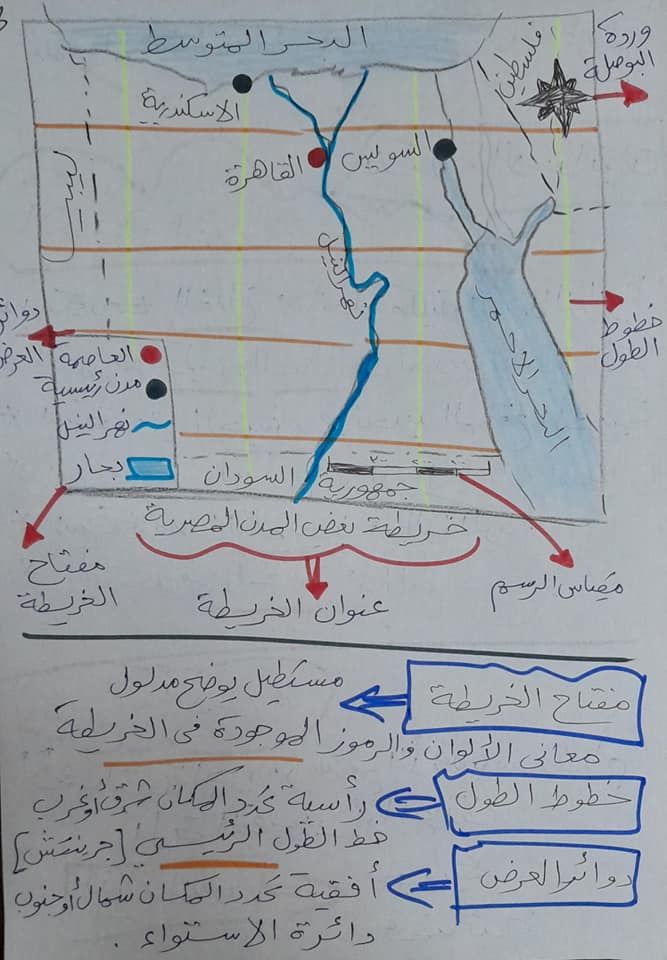 البحر المتوسط
وردة
البوصلة
فلسطين
الاسكندرية
السويس
القاهرة
ليبيا
نهر النيل
البحر الاحمر
خطوط
الطول
دوائر
العرض
العاصمة
مدن رئيسية
نهر النيل
بحار
جمهورية
السودان
خريطة بعض المدن المصرية
مفتاح
الخريطة
عنوان الخريطة
مقياس الرسم
مفتاح الخريطة
مستطيل يوضح مدلول
معانى الألوان والرموز الموجودة فى الخريطة
خطوط الطول
رأسية تحدد المكان شرق أو غرب
خط الطول الرئيسى [جرينتش]
دوائر العرض
أفقية تحدد المكان شمال أو جنوب
دائرة الاستواء .